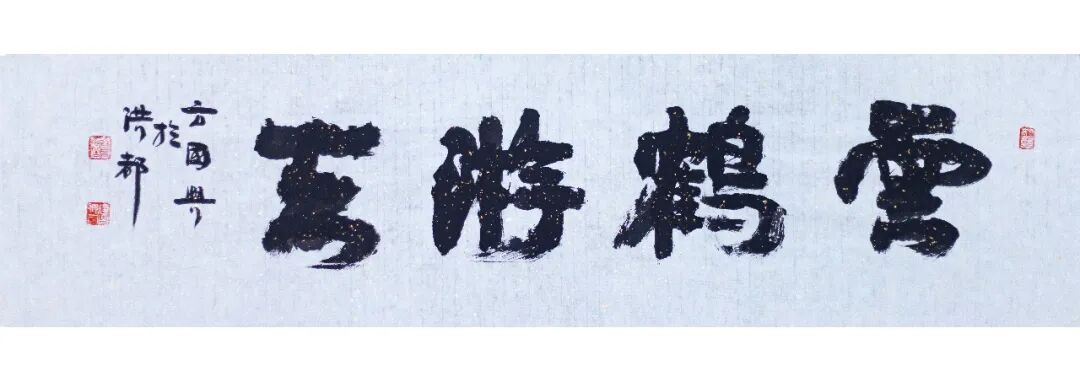 雲鶴游天
方國興
於
洪都